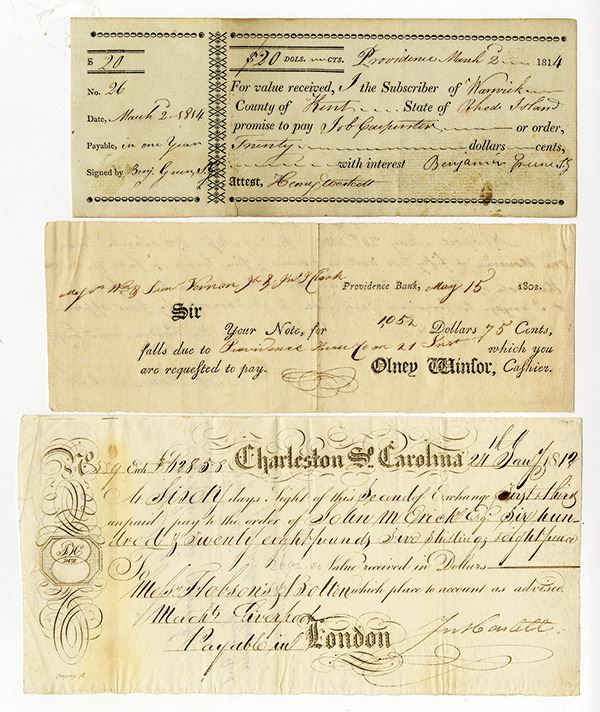 $ 20
No. 26
Date, March 2 - 1814
Payable, in one Year
Signed by Benj. Greene
$20 DOLS. CTS. Providence March 2 1814
For value received, I the Subscriber of Warwick
County of Kent State of Rhode Island
promise to pay Job Carpenter or order,
Twenty dollars cents,
with interest Benjamin Greene
Attest, Henry
Wm & Saml Vernon Jr & Clark
Providence Bank, May 15 1802.
Sir
Your Note, for 1,052 Dollars 75 Cents,
falls due to Providence on 21 which you
are requested to pay. Olney Winsor, Cashier.
No. Exch Charleston So. Carolina 24 Jany 1812
At Sixty days Sight of this Second of Exchange first & third
unpaid pay to the order of John M Esqr. Six hun-
dred & twenty eight pounds five shillings & eight pence
Value received in Dollars
To
Messrs Hobson & Bolton which place to account as advised
Mercht Liverpool
Payable in London